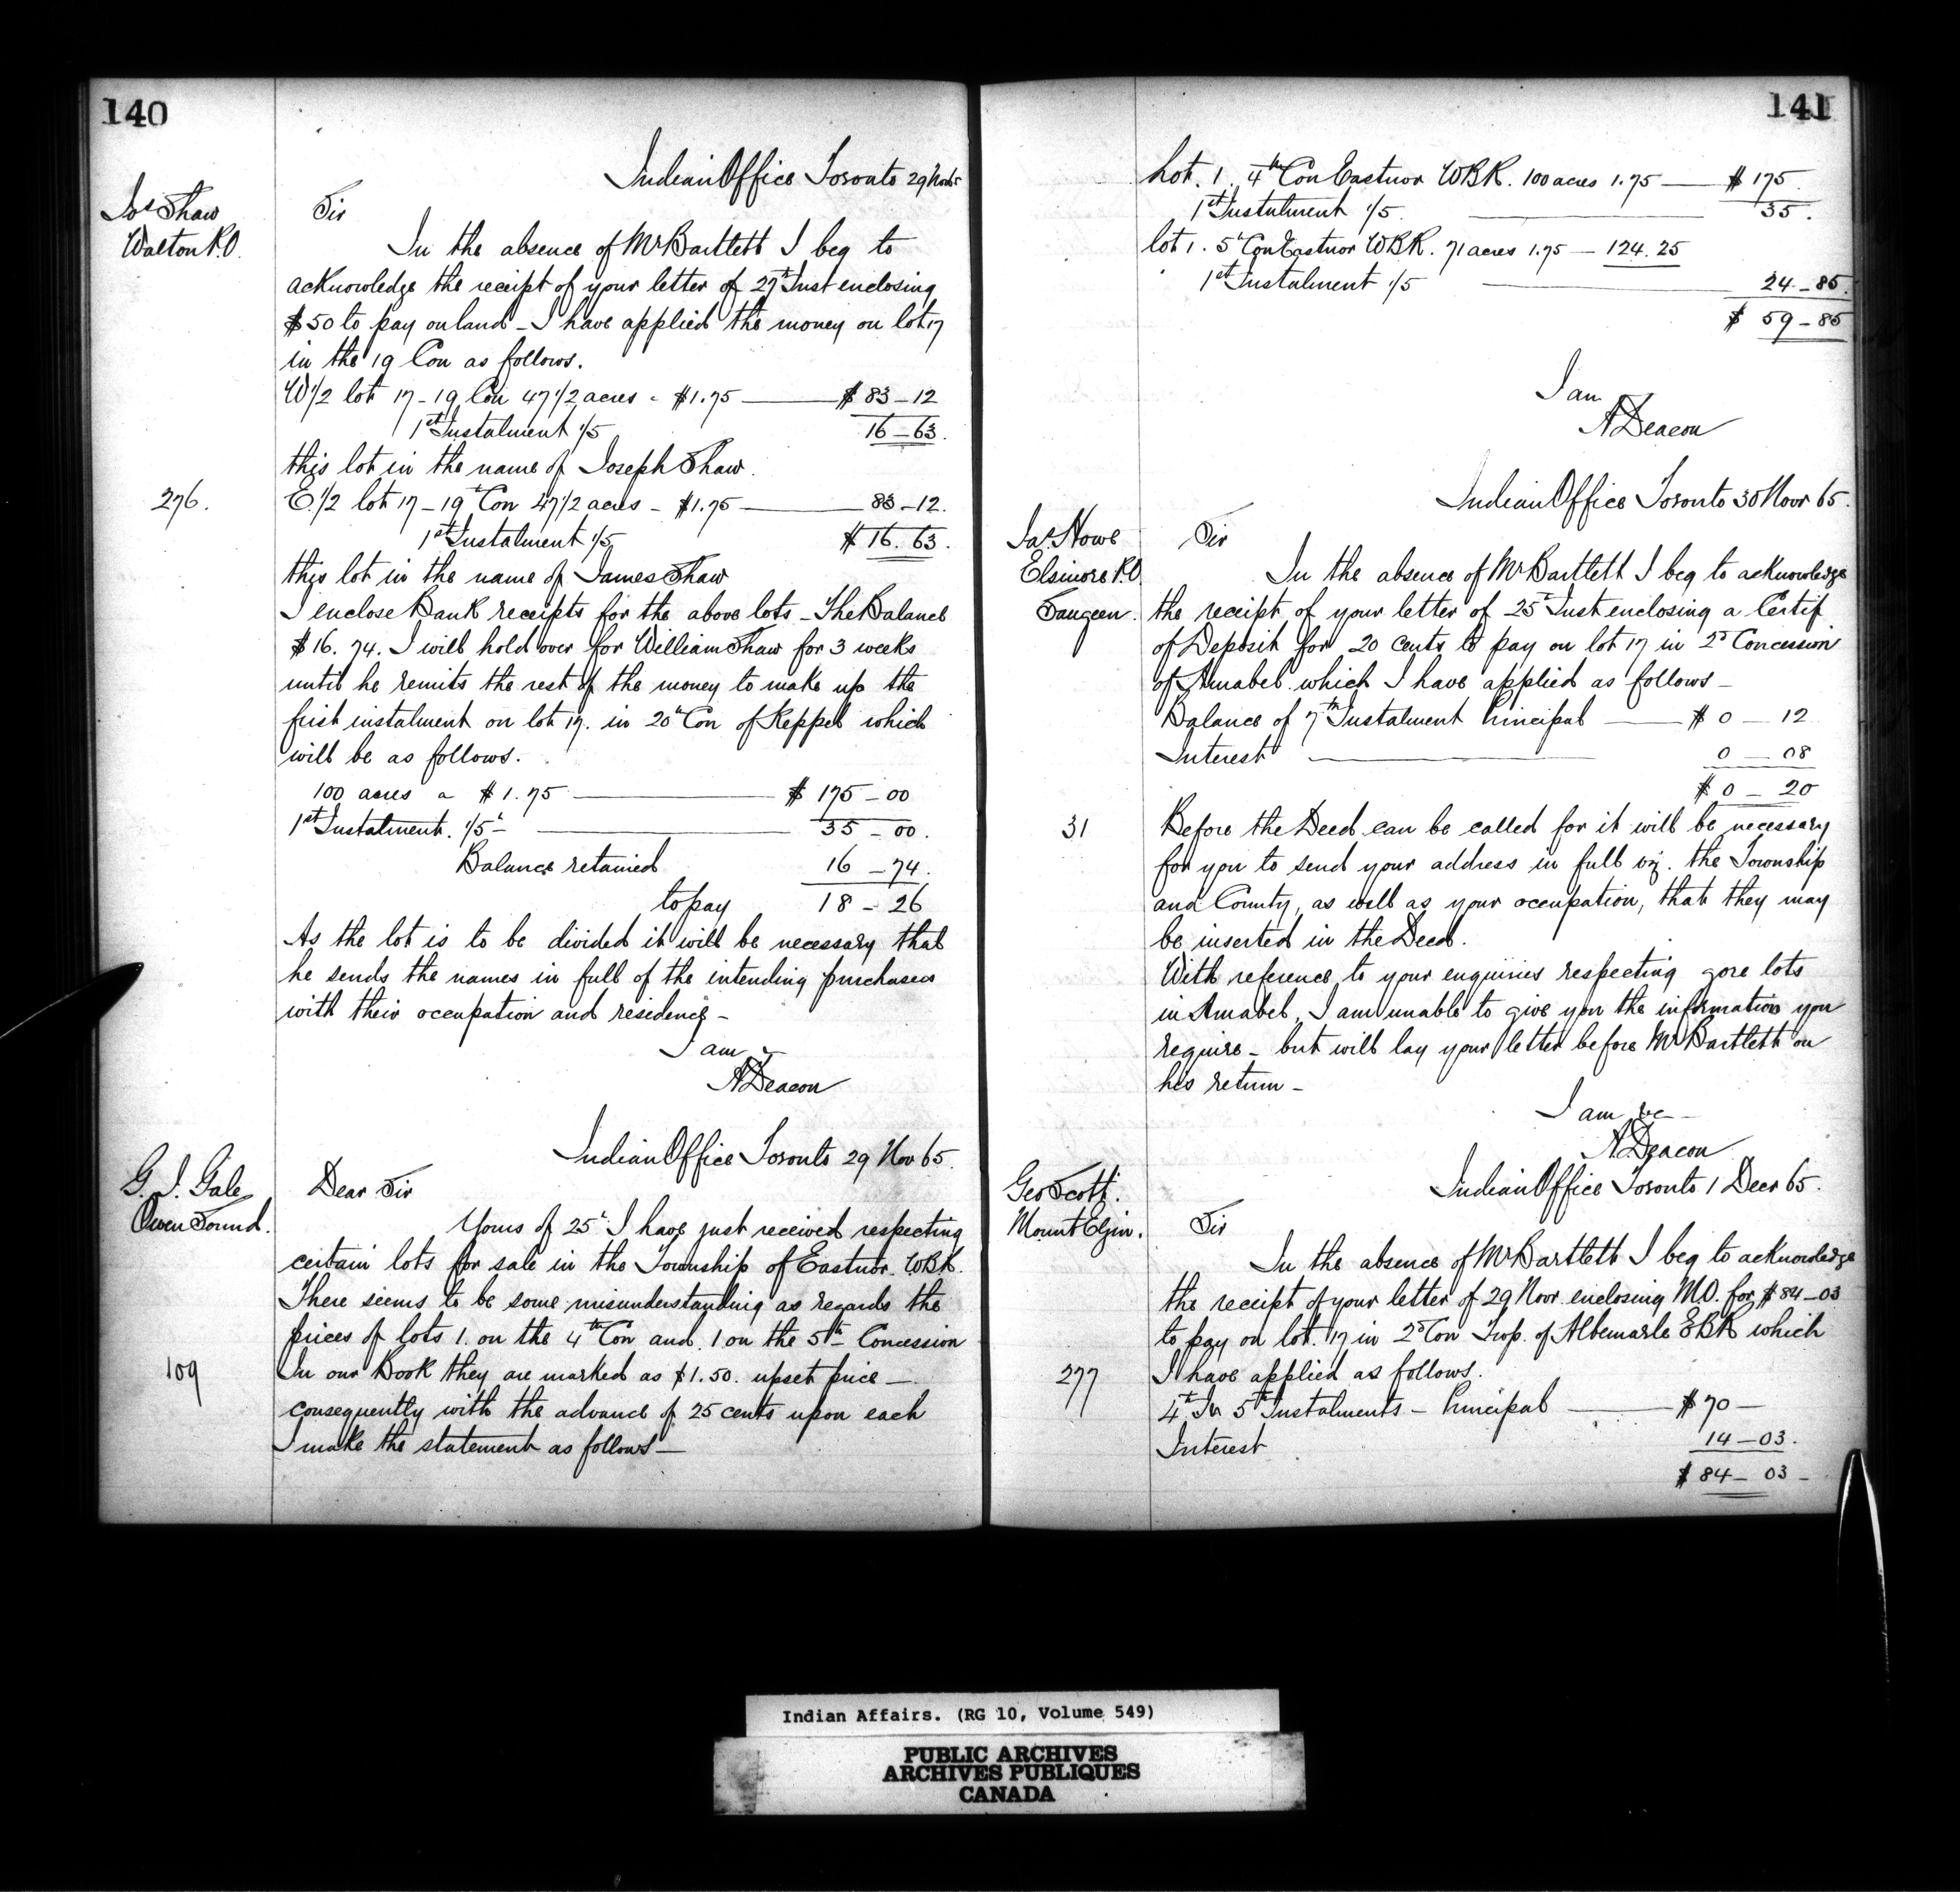 140
Indian Office Toronto 29 Nov 65
Jos Shaw
Walton P.O.
Sir
In the absence of Mr Bartlett I beg to
acknowledge the receipt of your letter of 27th Inst enclosing
$50 to pay on land - I have applied the money on lot 17
in the 19 Con as follows.
W 1/2 lot 17 - 19 Con 47 1/2 acres - $1.75 — $83-12
1st Instalment 1/5 16-63.
this lot in the name of Joseph Shaw.
276.
E. 1/2 lot 17 - 19t Con 47 1/2 acres - $1.75 — 83-12.
1st Instalment 1/5 $16.63.
this lot in the name of James Shaw
I enclose Bank receipts for the above lots - The Balance
$16.74. I will hold over for William Shaw for 3 weeks
until he remits the rest of the money to make up the
first instalment on lot 17. in 20t Con of Keppel which
will be as follows.
100 acres a $1.75 — $175-00
1st Instalment. 1/5t — 35-00.
Balance retained 16-74.
to pay 18-26
As the lot is to be divided it will be necessary that
he sends the names in full of the intending purchasers
with their occupation and residence -
I am
A Deacon
Indian Office Toronto 29 Nov 65.
G. J. Gale
Owen Sound.
Dear Sir
Yours of 25t I have just received respecting
certain lots for sale in the Township of Eastnor. WBR.
There seems to be some misunderstanding as regards the
prices of lots 1. on the 4th Con and 1 on the 5th Concession
109
In our Book they are marked as $1.50. upset price —
consequently with the advance of 25 cents upon each
I make the statement as follows —
141
Lot. 1. 4th Con Eastnor WBR. 100 acres 1.75 — $175.
1st Instalment 1/5. — 35.
lot 1. 5t Con Eastnor WBR. 71 acres 1.75 — 124.25
1st Instalment 1/5 — 24-85.
$59-85
I am
A Deacon
Indian Office Toronto 30 Novr 65.
Jas Howe
Elsinore P.O.
Saugeen.
Sir
In the absence of Mr Bartlett I beg to acknowledge
the receipt of your letter of 25t Inst enclosing a Certif
of Deposit for 20 cents to pay on lot 17 in 2d Concession
of Amabel which I have applied as follows -
Balance of 7th Instalment Principal — $0-12
Interest — 0-08
$0-20
31
Before the Deed can be called for it will be necessary
for you to send your address in full viz. the Township
and County, as well as your occupation, that they may
be inserted in the Deed.
With reference to your enquiries respecting gore lots
in Amabel, I am unable to give you the information you
require - but will lay your letter before Mr Bartlett on
his return -
I am &c -
A Deacon
Indian Office Toronto 1 Decr 65.
Geo Scott.
Mount Elgin.
Sir
In the absence of Mr Bartlett I beg to acknowledge
the receipt of your letter of 29 Novr enclosing M.O. for $84-03
to pay on lot. 17 in 2d Con Twp. of Albemarle EBR which
277
I have applied as follows.
4th & 5th Instalments - Principal — $70-
Interest 14-03.
$84-03-
Indian Affairs. (RG 10, Volume 549)
PUBLIC ARCHIVES
ARCHIVES PUBLIQUES
CANADA